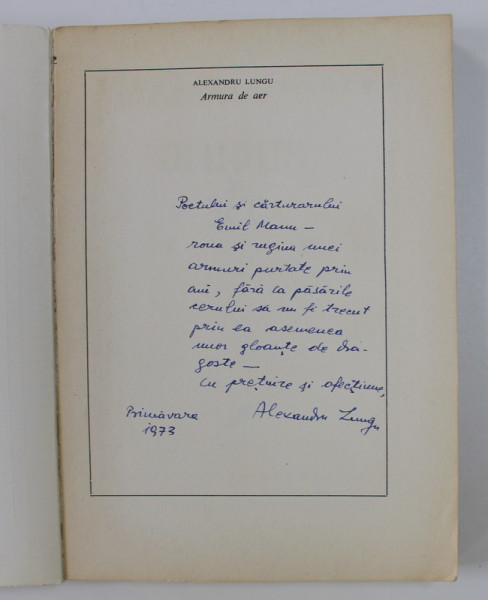 ALEXANDRU LUNGU
Armura de aer
Poetului și cărturarului
Emil Manu —
roua și rugina unei
armuri purtate prin
ani, fără ca păsările
cerului să nu fi trecut
prin ea asemenea
unor gloanțe de dra-
goste —
Cu prețuire și afecțiune,
Alexandru Lungu
Primăvara
1973